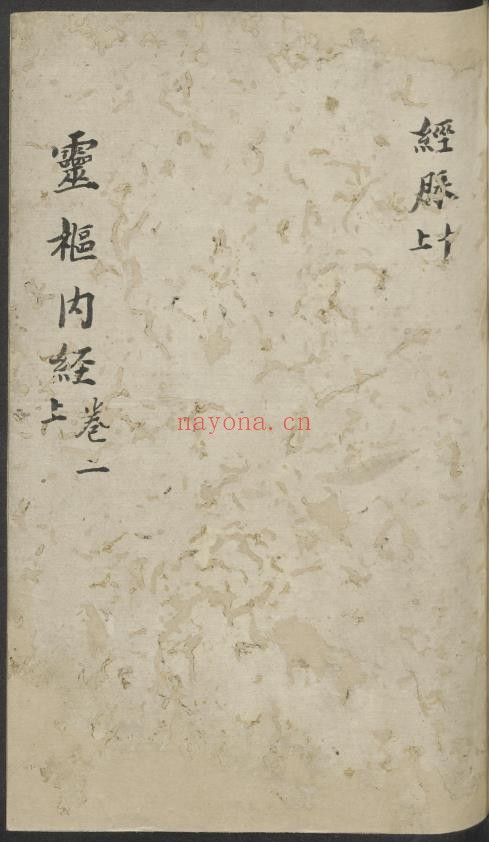 經脈十
上
靈樞内経卷二
上
nayona.cn